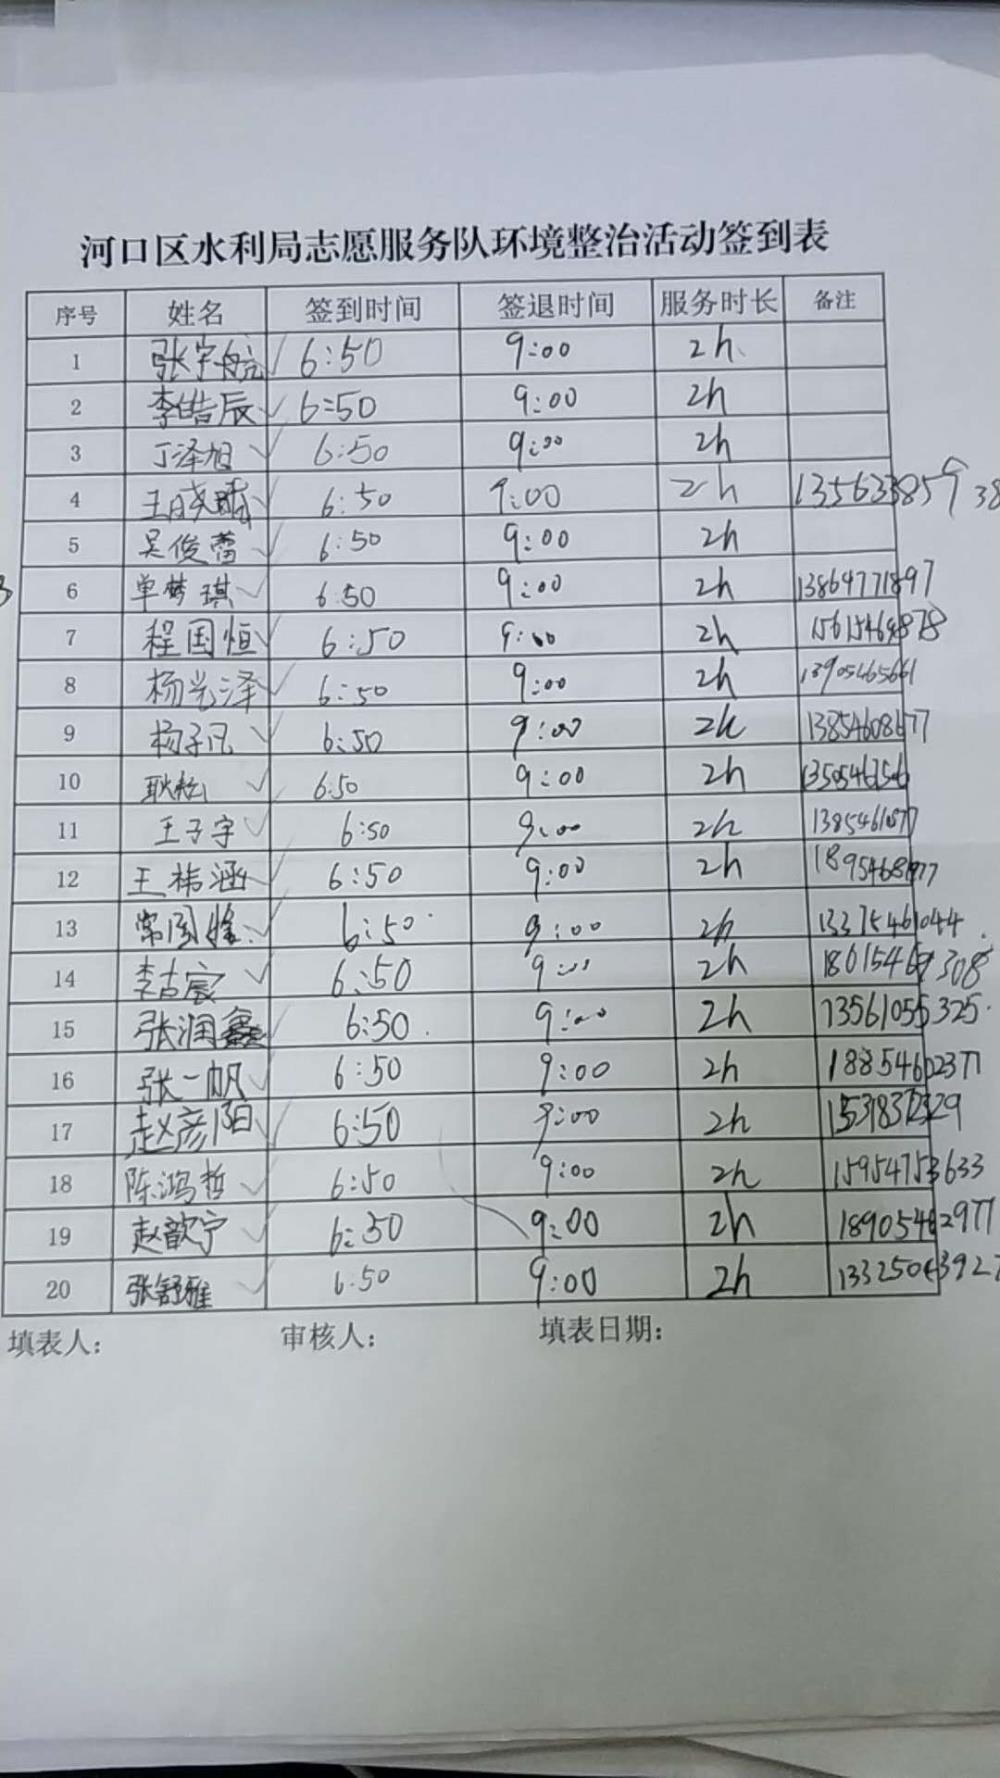 河口区水利局志愿服务队环境整治活动签到表
序号 姓名 签到时间 签退时间 服务时长 备注
1 张宇航 6:50 9:00 2h
2 李皓辰 6:50 9:00 2h
3 丁泽旭 6:50 9:00 2h
4 王晓 6:50 9:00 2h
5 吴俊蕾 6:50 9:00 2h
6 单梦琪 6:50 9:00 2h 13864771897
7 程国恒 6:50 9:00 2h 15615469878
8 杨光泽 6:50 9:00 2h 13905465661
9 杨子凡 6:50 9:00 2h
10 耿 6:50 9:00 2h
11 王子宇 6:50 9:00 2h
12 王祎涵 6:50 9:00 2h
13 常国 6:50 9:00 2h 13375461044
14 李吉宸 6:50 9:00 2h
15 张润鑫 6:50 9:00 2h 13561055325
16 张一帆 6:50 9:00 2h 18854602377
17 赵彦阳 6:50 9:00 2h
18 陈鸿哲 6:50 9:00 2h 15954753633
19 赵歆宁 6:50 9:00 2h 18905462977
20 张舒雅 6:50 9:00 2h
填表人： 审核人： 填表日期：